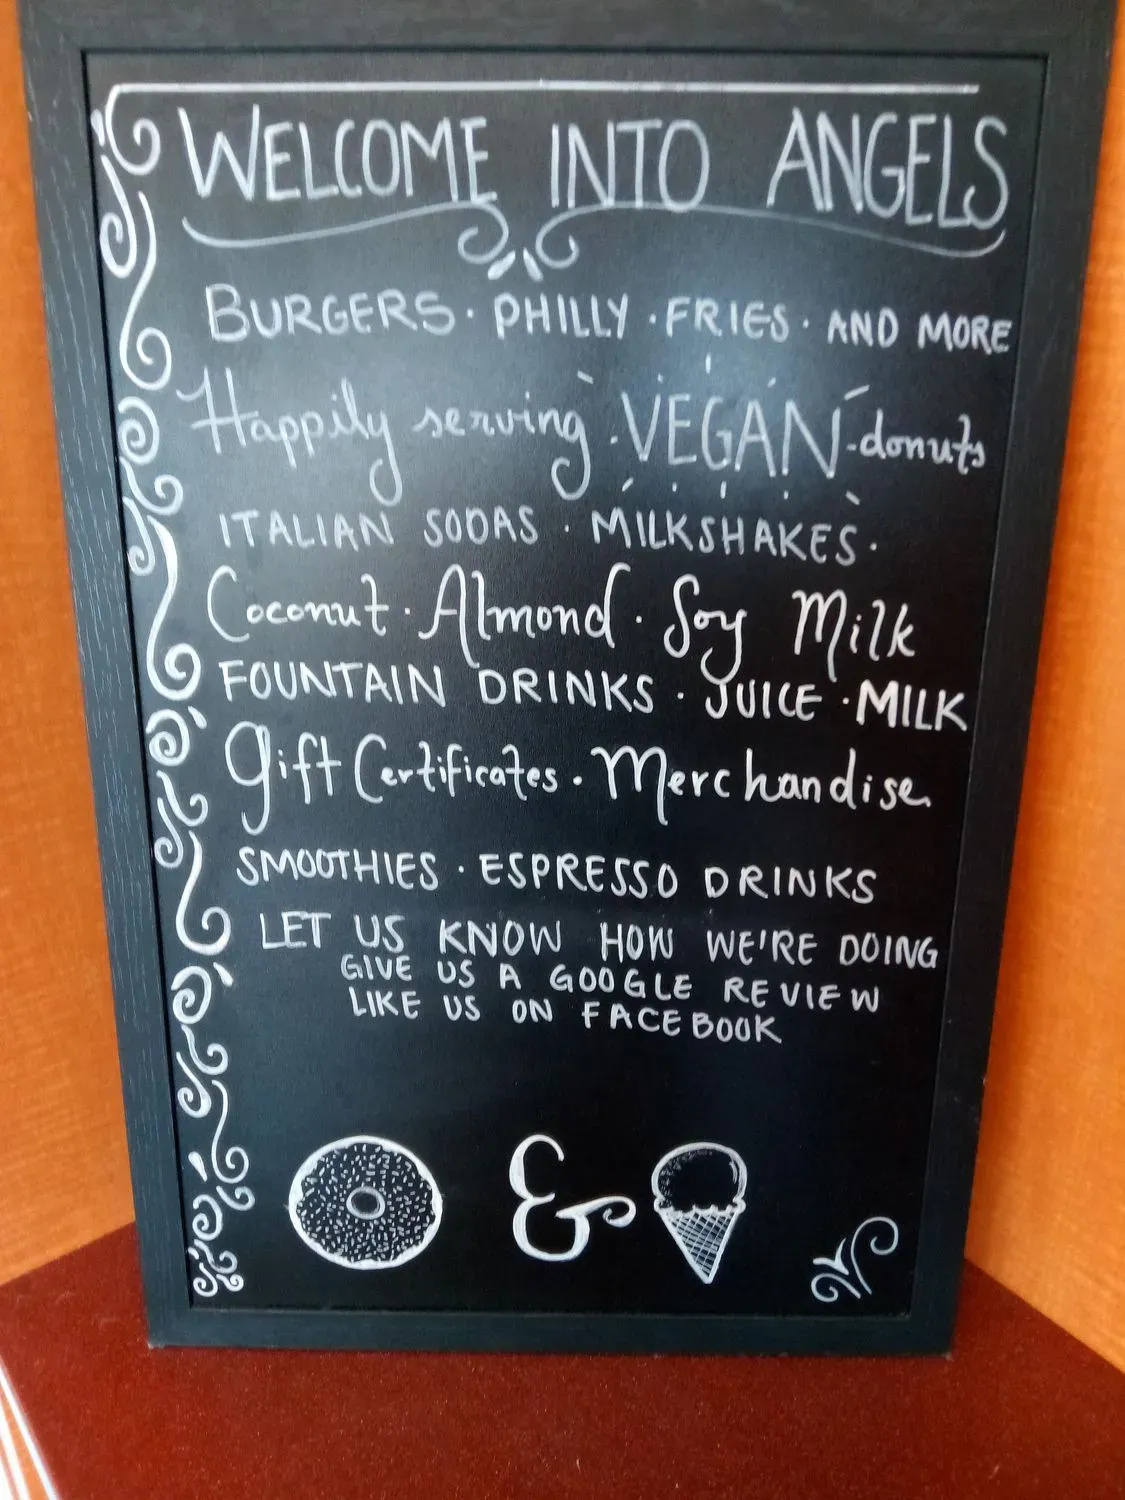 WELCOME INTO ANGELS
BURGERS · PHILLY · FRIES · AND MORE
Happily serving · VEGAN - donuts
ITALIAN SODAS · MILKSHAKES ·
Coconut · Almond · Soy Milk
FOUNTAIN DRINKS · JUICE · MILK
Gift Certificates · Merchandise
SMOOTHIES · ESPRESSO DRINKS
LET US KNOW HOW WE'RE DOING
GIVE US A GOOGLE REVIEW
LIKE US ON FACEBOOK
&